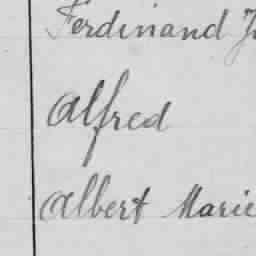 Ferdinand
Alfred
Albert Marie